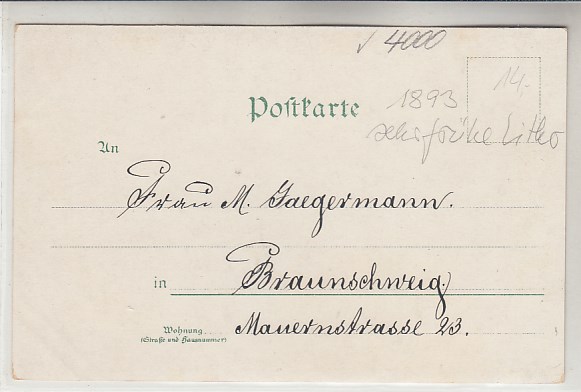 V 4000
14.-
Postkarte
1893
sehr frühe Litho
An
Frau M. Jaegermann.
in Braunschweig.
Wohnung
(Straße und Hausnummer)
Mauernstrasse 23.